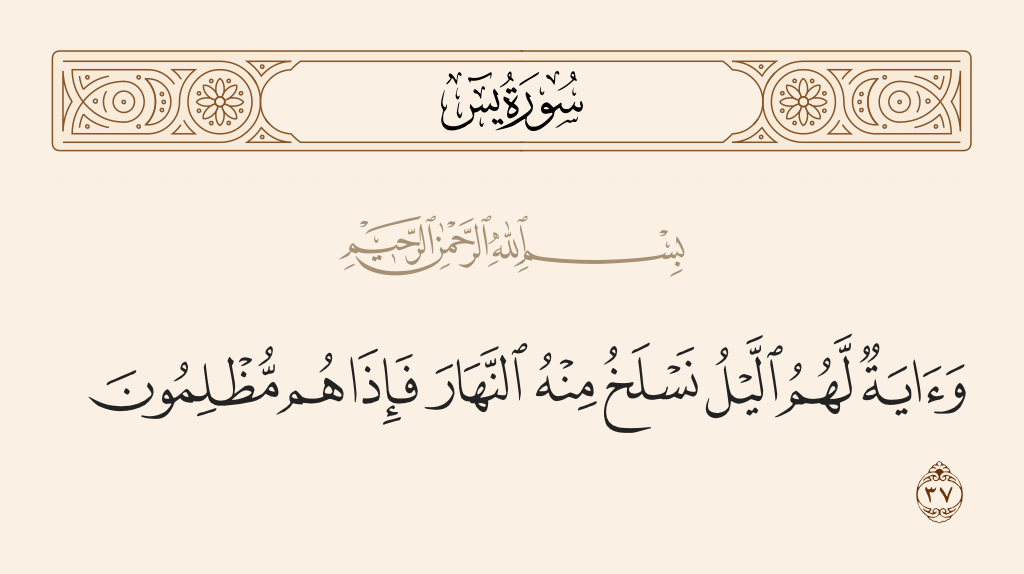 سُورَةُ يسٓ
بِسْمِ ٱللَّهِ ٱلرَّحْمَٰنِ ٱلرَّحِيمِ
وَءَايَةٌ لَّهُمُ ٱلَّيْلُ نَسْلَخُ مِنْهُ ٱلنَّهَارَ فَإِذَا هُم مُّظْلِمُونَ
٣٧